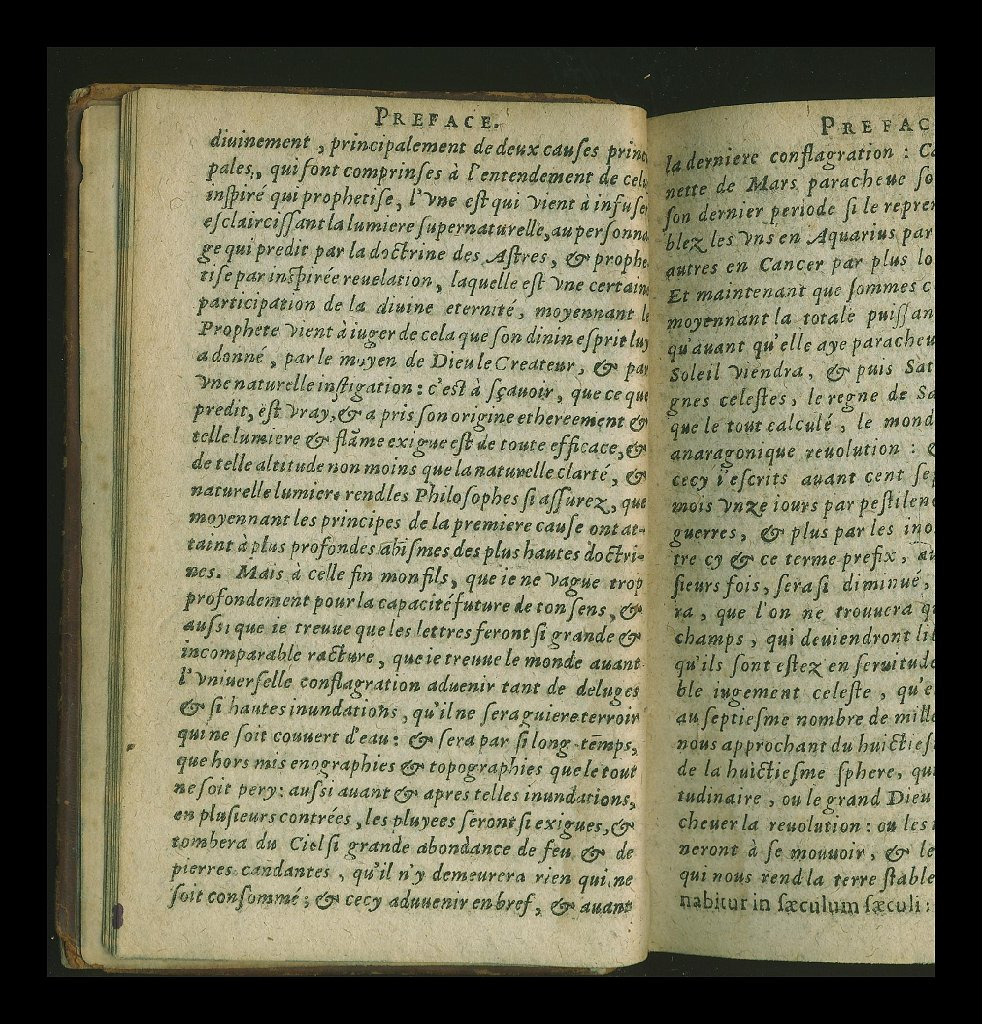 PREFACE.
diuinement, principalement de deux causes princ
pales, qui sont comprinses à l'entendement de celu
inspiré qui prophetise, l'vne est qui vient à infuse
esclaircissant la lumiere supernaturelle, au personna
ge qui predit par la doctrine des Astres, & prophe
tise par inspirée reuelation, laquelle est vne certaine
participation de la diuine eternité, moyennant le
Prophete vient à iuger de cela que son dinin esprit luy
a donné, par le moyen de Dieu le Createur, & par
vne naturelle instigation: c'est à sçauoir, que ce que
predit, est vray, & a pris son origine ethereement &
telle lumiere & flãme exigue est de toute efficace, &
de telle altitude non moins que la naturelle clarté, &
naturelle lumiere rend les Philosophes si assurez, que
moyennant les principes de la premiere cause ont at-
taint à plus profondes abismes des plus hautes doctri-
nes. Mais à celle fin mon fils, que ie ne vague trop
profondement pour la capacité future de ton sens, &
aussi que ie treuue que les lettres feront si grande &
incomparable racture, que ie treuue le monde auant
l'vniuerselle conflagration aduenir tant de deluges
& si hautes inundations, qu'il ne sera guiere terroir
qui ne soit couuert d'eau: & sera par si long-tẽmps,
que hors mis enographies & topographies que le tout
ne soit pery: aussi auant & apres telles inundations,
en plusieurs contrées, les pluyees seront si exigues, &
tombera du Ciel si grande abondance de feu & de
pierres candantes, qu'il n'y demeurera rien qui ne
soit consommé; & cecy aduuenir en bref, & auant
PREFAC
la derniere conflagration: Ca
nette de Mars paracheue so
son dernier periode si le repren
blez les vns en Aquarius par
autres en Cancer par plus lo
Et maintenant que sommes c
moyennant la totale puissan
qu'auant qu'elle aye paracheu
Soleil viendra, & puis Sat
gnes celestes, le regne de Sa
que le tout calculé, le mond
anaragonique reuolution: &
cecy i'escrits auant cent sep
mois vnze iours par pestilenc
guerres, & plus par les ino
tre cy & ce terme prefix, au
sieurs fois, sera si diminué,
ra, que l'on ne trouuera qu
champs, qui deuiendront lib
qu'ils sont estez en seruitude
ble iugement celeste, qu'e
au septiesme nombre de mille
nous approchant du huictiesm
de la huictiesme sphere, qui
tudinaire, ou le grand Dieu
cheuer la reuolution: ou les i
neront à se mouuoir, & le
qui nous rend la terre stable
nabitur in sæculum sæculi: